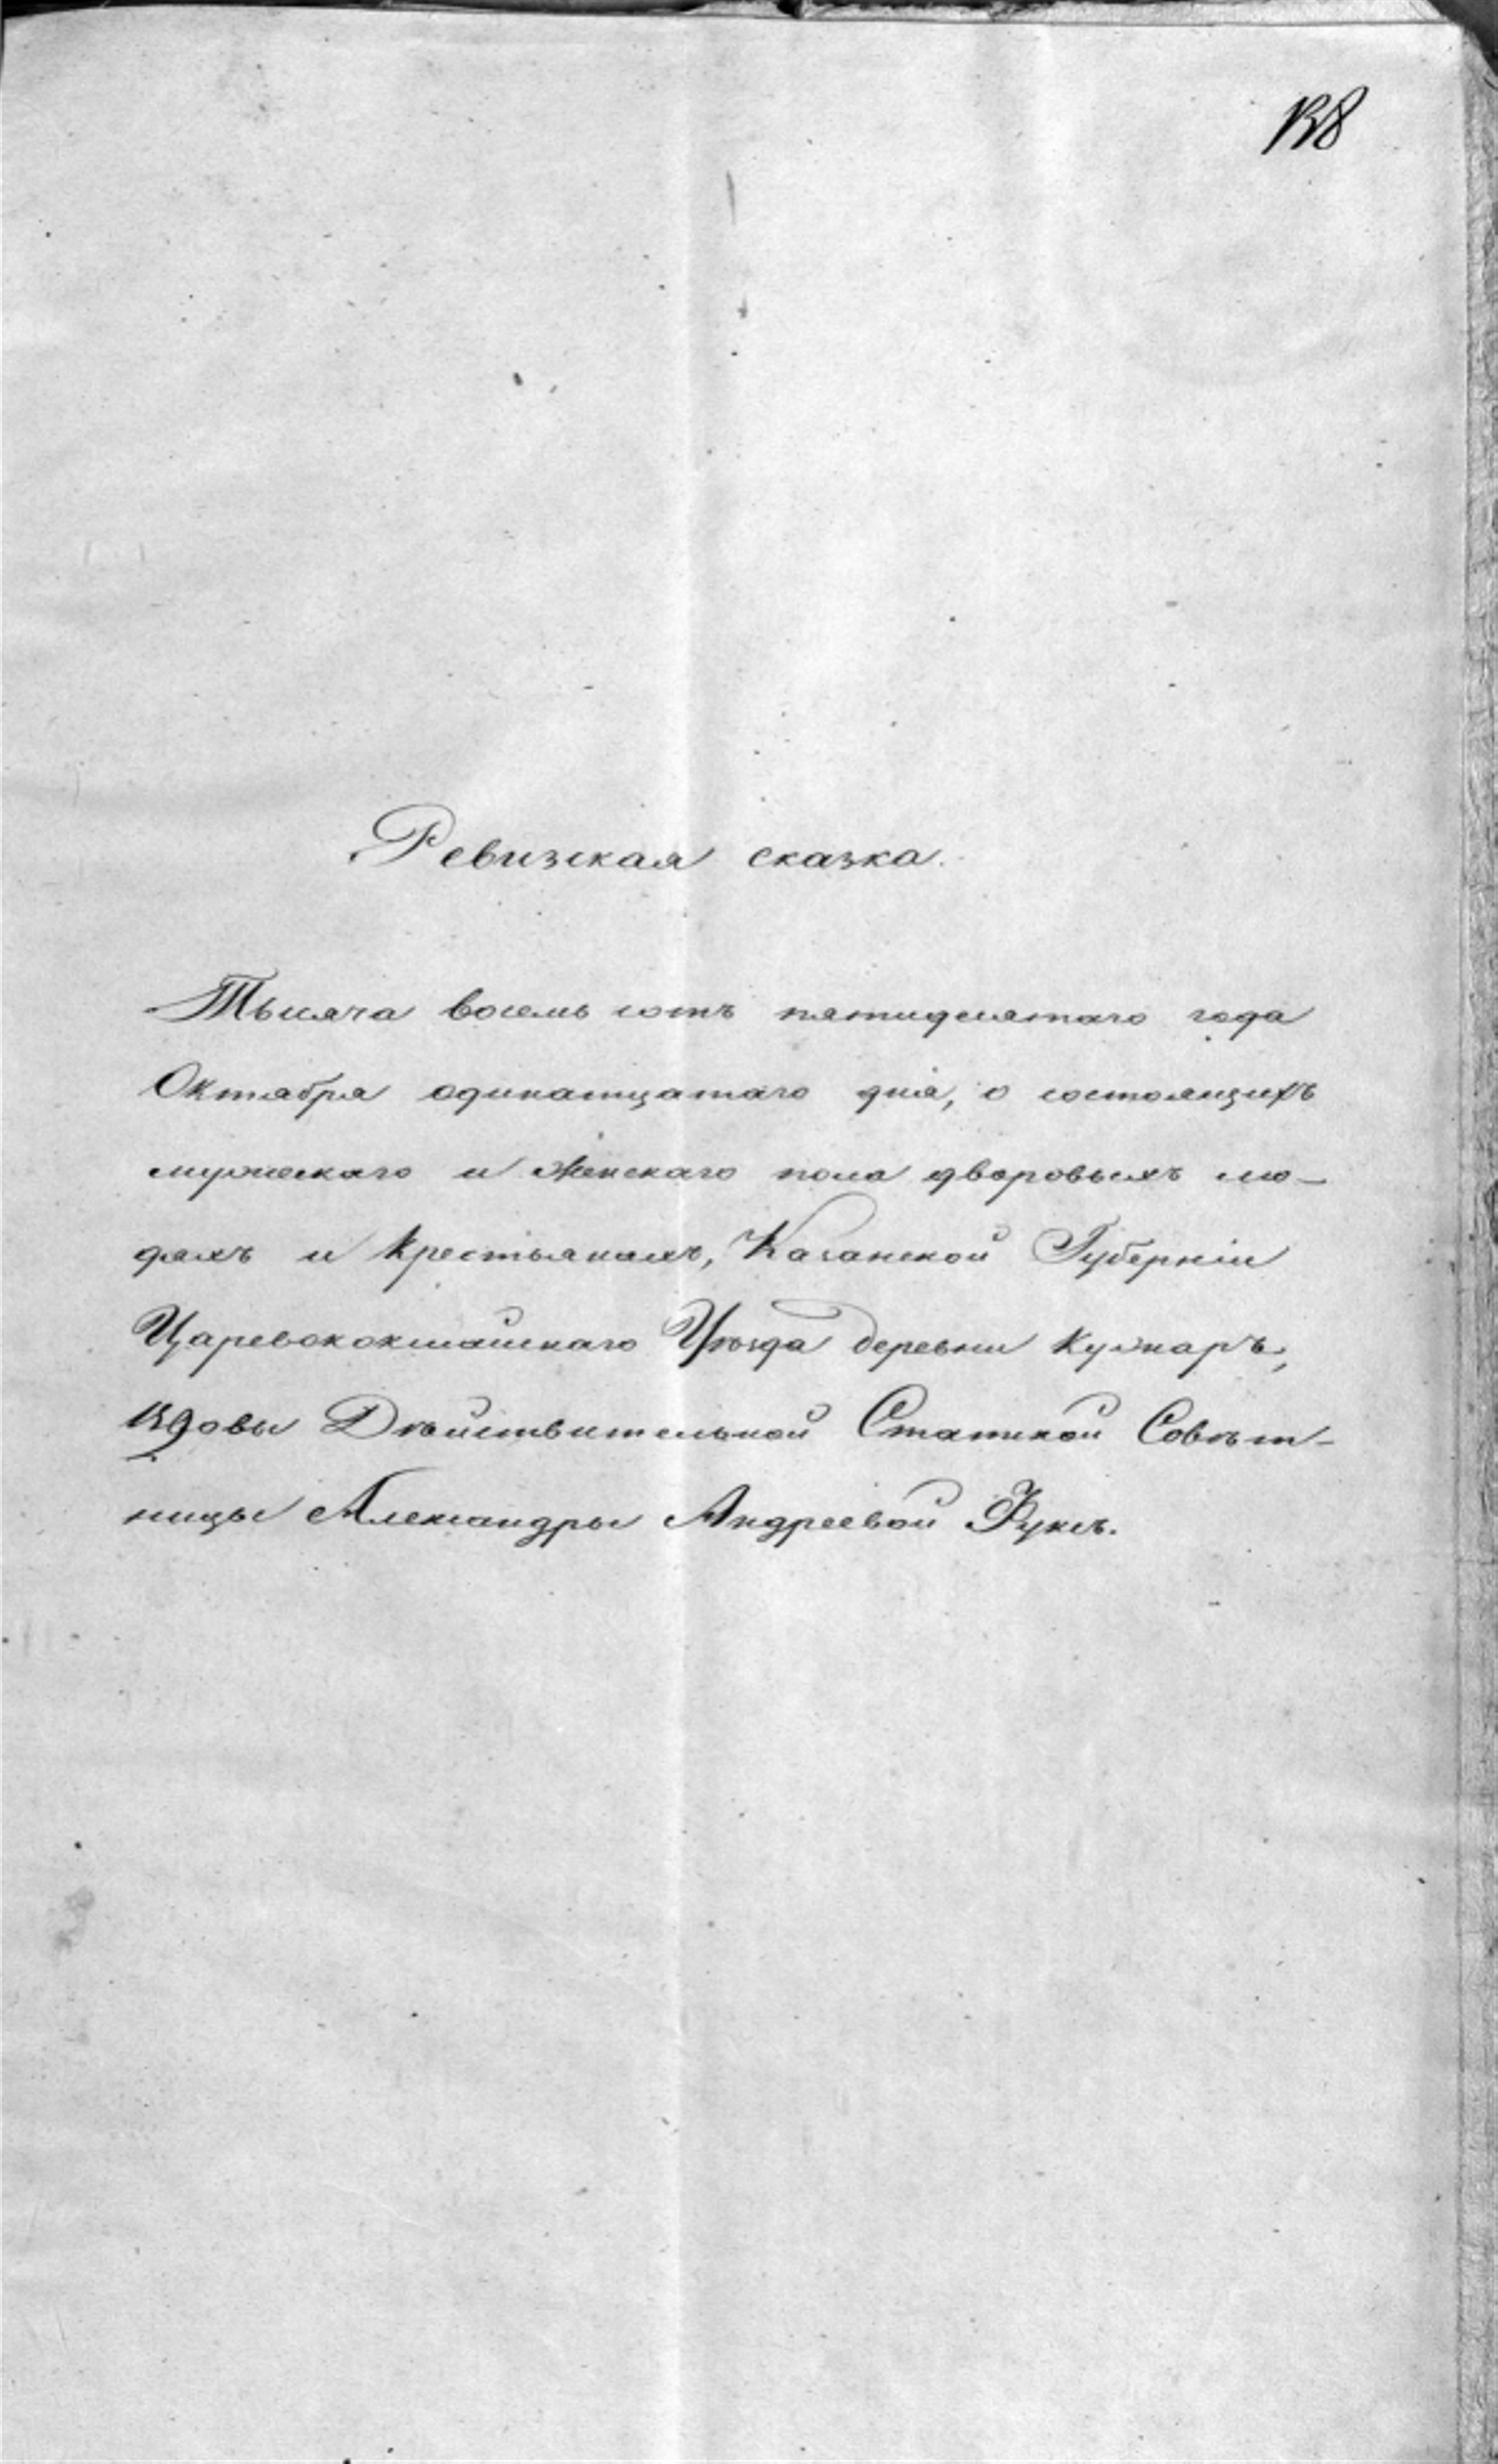 138
Ревизская сказка.
Тысяча восемь сотъ пятидесятаго года
Октября одинатцатаго дня, о состоящихъ
мужескаго и женскаго пола дворовыхъ лю-
дяхъ и крестьянахъ, Казанской Губерніи
Царевококшайскаго Уѣзда деревни
Вдовы Дѣйствительной Статской Совѣт-
ницы Александры Андреевой Фуксъ.